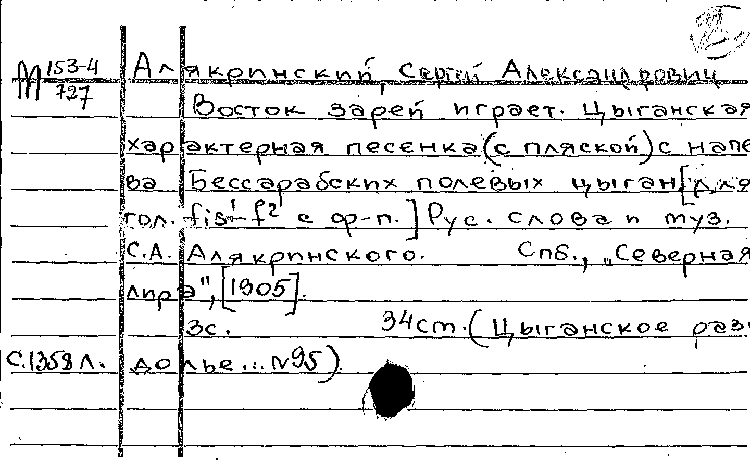 М 153-4/727
Алякринский, Сергей Александрович
Восток зарей играет. Цыганская
характерная песенка (с пляской) с напе
ва Бессарабских полевых цыган [Для
гол. fis¹-f² с ф-п.] Рус. слова и муз.
С.А. Алякринского. Спб., „Северная
лира", [1905].
3с. 34cm. (Цыганское раз
С.1358л. долье... N95)